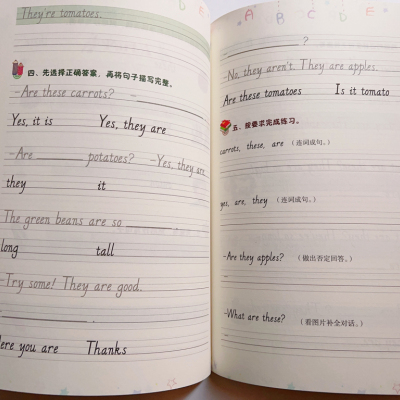 They're tomatoes.
四、先选择正确答案，再将句子描写完整。
-Are these carrots?
Yes, it is Yes, they are
-Are potatoes? -Yes, they are
they it
The green beans are so
long tall
-Try some! They are good.
Here you are Thanks
A B C D E
?
-No, they aren't. They are apples.
Are these tomatoes Is it tomato
五、按要求完成练习。
carrots, these, are （连词成句。）
yes, are, they （连词成句。）
-Are they apples? （做出否定回答。）
-What are these? （看图片补全对话。）